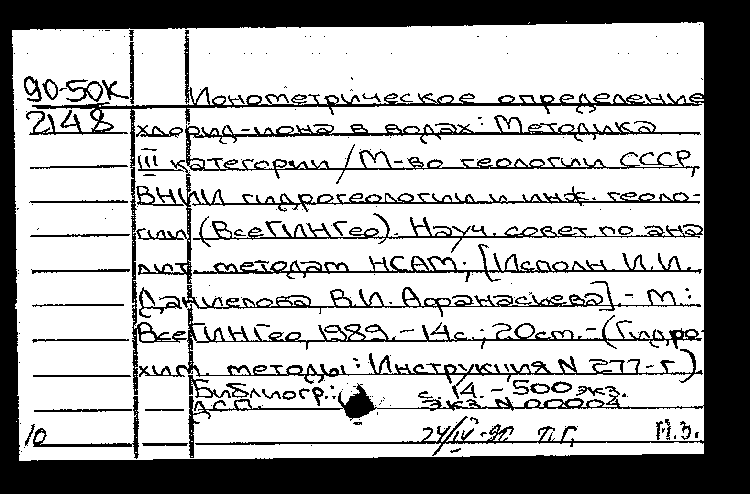 90-50К Ионометрическое определение
2148 хлорид-иона в водах: Методика
III категории / М-во геологии СССР,
ВНИИ гидрогеологии и инж. геоло-
гии (ВсеГИНГео). Науч. совет по ана
лит. методам НСАМ; [Исполн. И.И.
Данилова, В.И. Афанасьева]. - М.:
ВсеГИНГео, 1989. - 14с.; 20см. - (Гидро-
хим. методы: Инструкция N 277-г)
Библиогр.: с. 14. - 500 экз.
ДСП. Экз. N 00004
10 24/IV-90 П.Г. М.З.